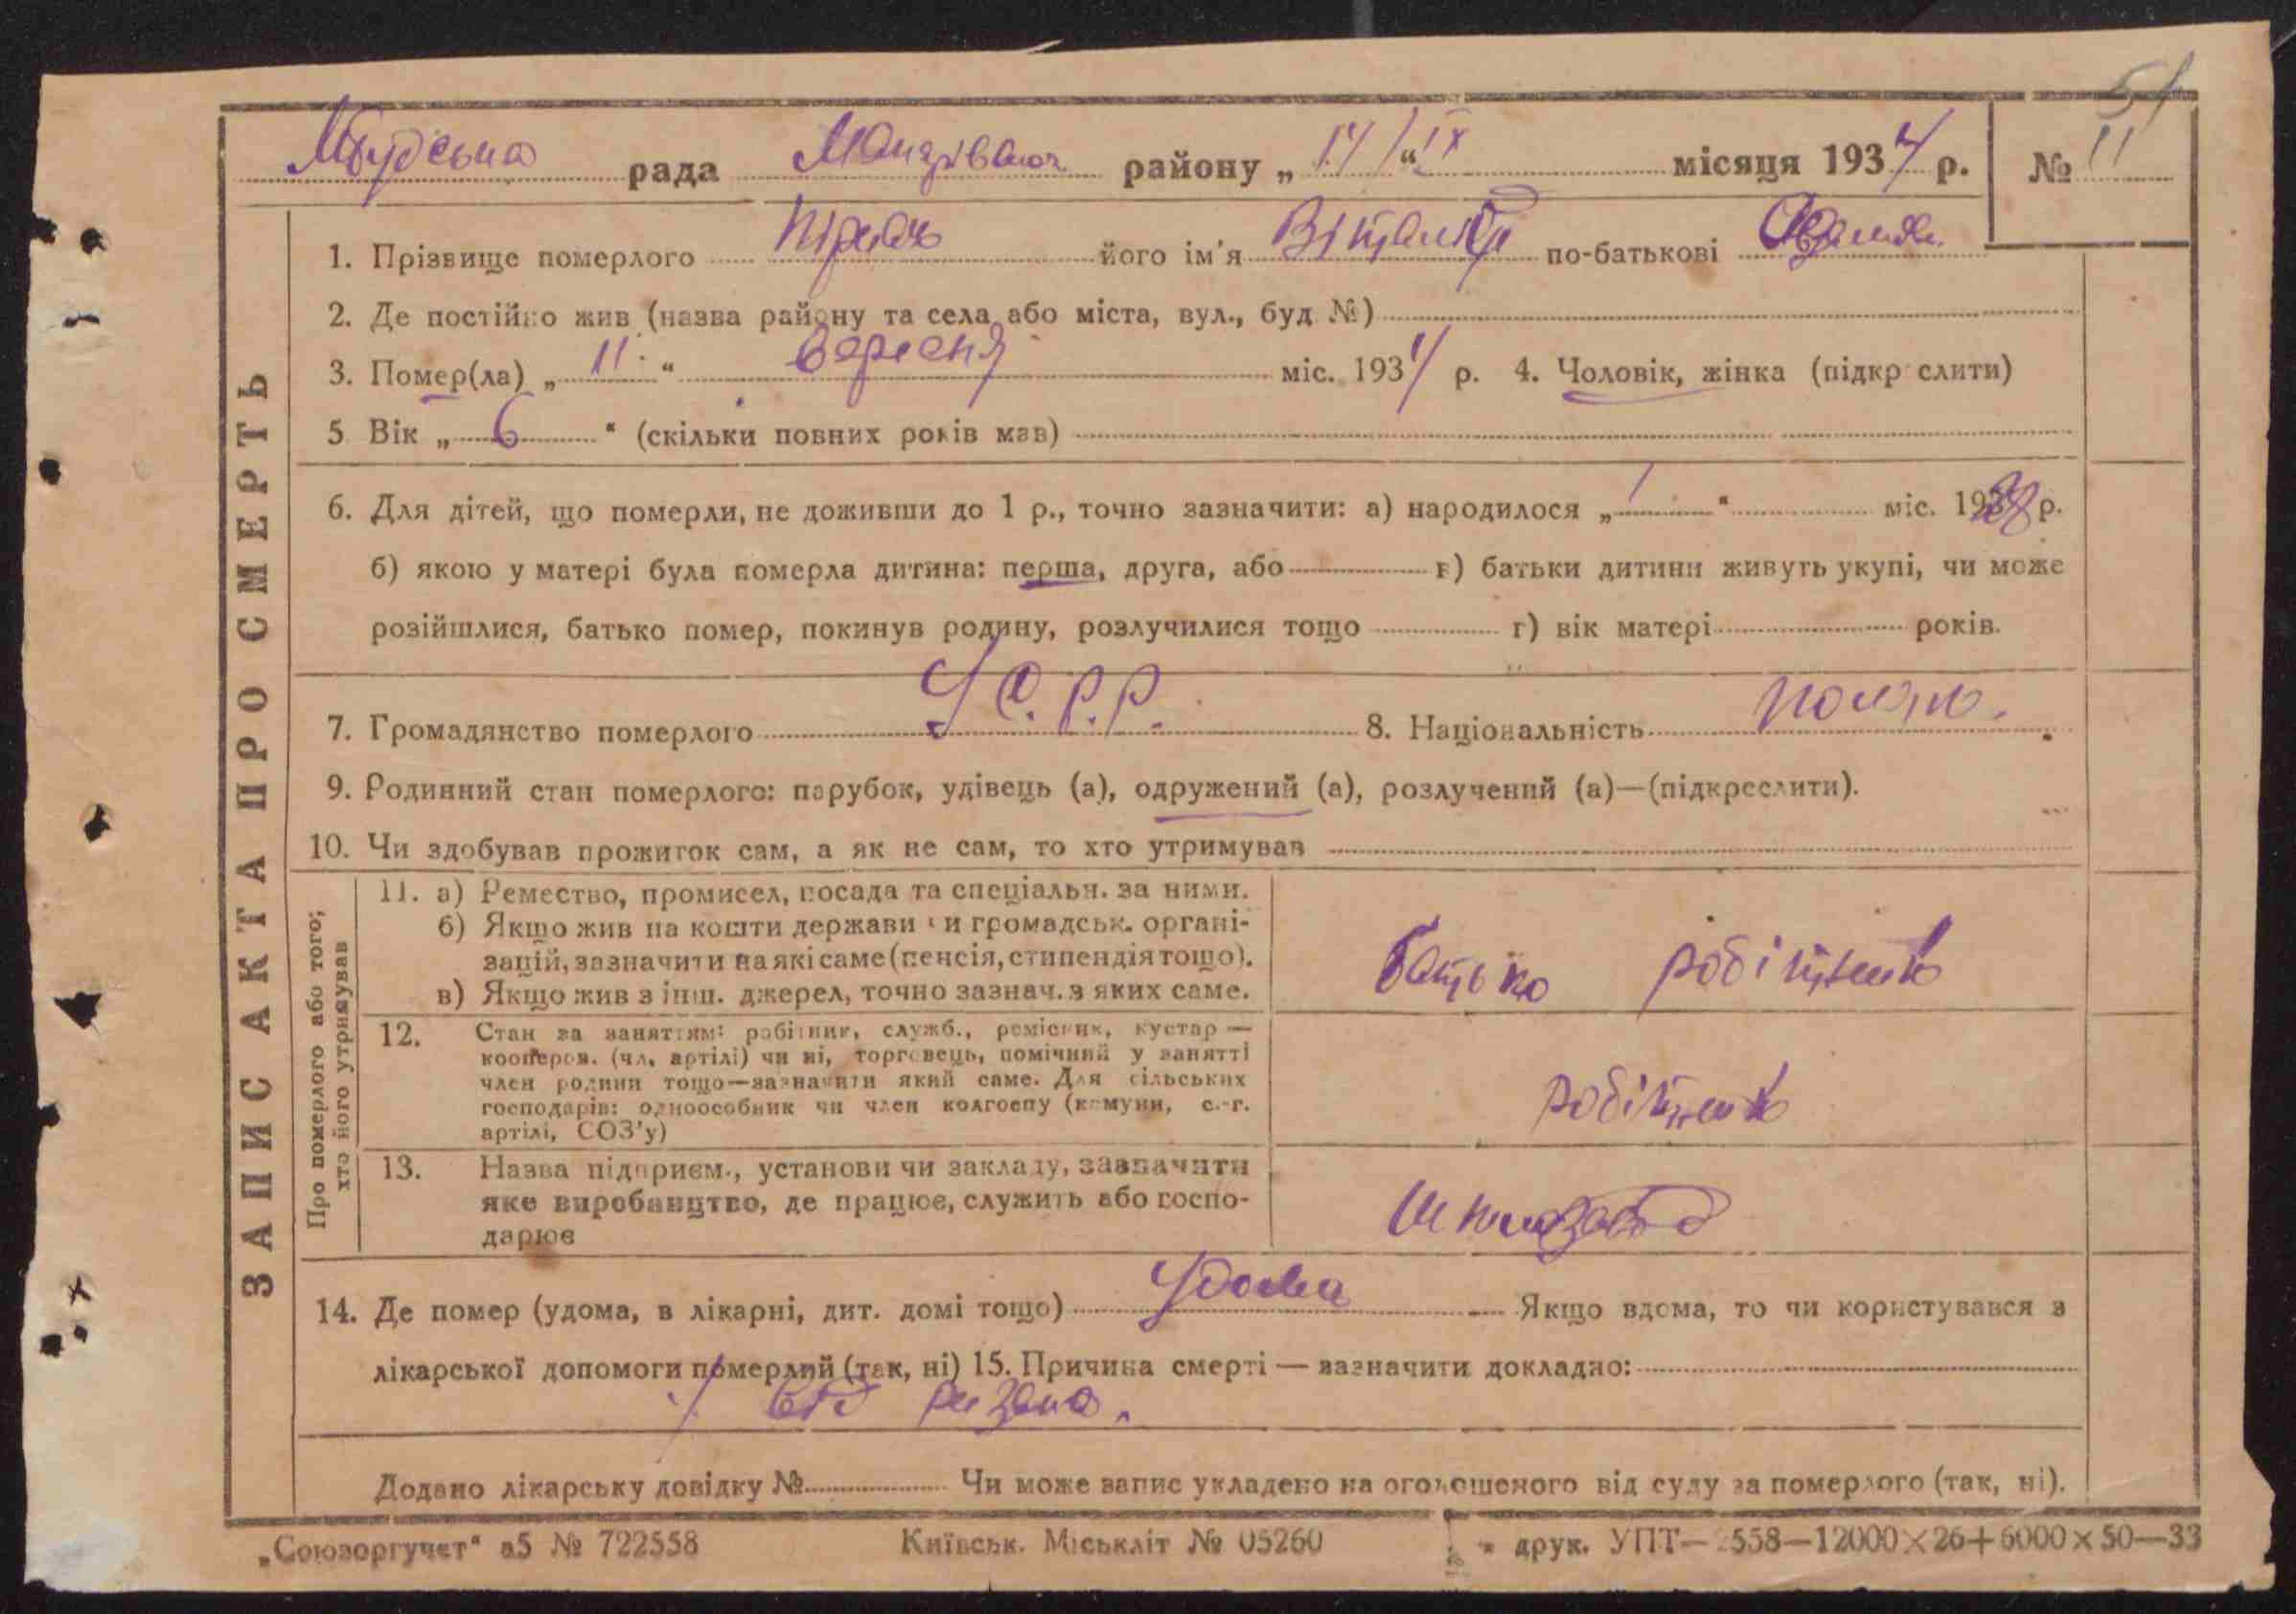 51
рада района „ 14 “ IX місяця 1934 р. № 11
1. Прізвище померлого його ім'я Віталій по-батькові
2. Де постійно жив (назва району та села або міста, вул., буд. №)
3. Помер(ла) „ 11 “ вересня міс. 1934 р. 4. Чоловік, жінка (підкреслити)
5 Вік „ 6 “ (скільки повних років мав)
6. Для дітей, що померли, не доживши до 1 р., точно зазначити: а) народилося „ “ міс. 1928 р.
б) якою у матері була померла дитина: перша, друга, або в) батьки дитини живуть укупі, чи може
розійшлися, батько помер, покинув родину, розлучилися тощо г) вік матері років.
7. Громадянство померлого У.С.Р.Р. 8. Національність поляк.
9. Родинний стан померлого: парубок, удівець (а), одружений (а), розлучений (а)—(підкреслити).
10. Чи здобував прожиток сам, а як не сам, то хто утримував
ЗАПИС АКТА ПРО СМЕРТЬ
Про померлого або того;
хто його утримував
11. а) Ремество, промисел, посада та спеціальн. за ними.
б) Якщо жив на кошти держави чи громадськ. органі-
зацій, зазначити на які саме (пенсія, стипендія тощо).
в) Якщо жив з інш. джерел, точно зазнач. з яких саме.
батько робітник
12. Стан за заняттям: робітник, служб., ремісник, кустар —
кооперов. (чл. артілі) чи ні, торговець, помічний у занятті
член родини тощо—зазначити який саме. Для сільських
господарів: одноосібник чи член колгоспу (комуни, с.-г.
артілі, СОЗ'у)
робітник
13. Назва підприєм., установи чи закладу, зазначити
яке виробництво, де працює, служить або госпо-
дарює
14. Де помер (удома, в лікарні, дит. домі тощо) удома Якщо вдома, то чи користувався з
лікарської допомоги померлий (так, ні) 15. Причина смерті — зазначити докладно:
від
Додано лікарську довідку № Чи може запис укладено на оголошеного від суду за померлого (так, ні).
„Союзоргучет“ а5 № 722558 Київськ. Міськліт № 05260 друк. УПТ— 2558—12000×26+6000×50—33